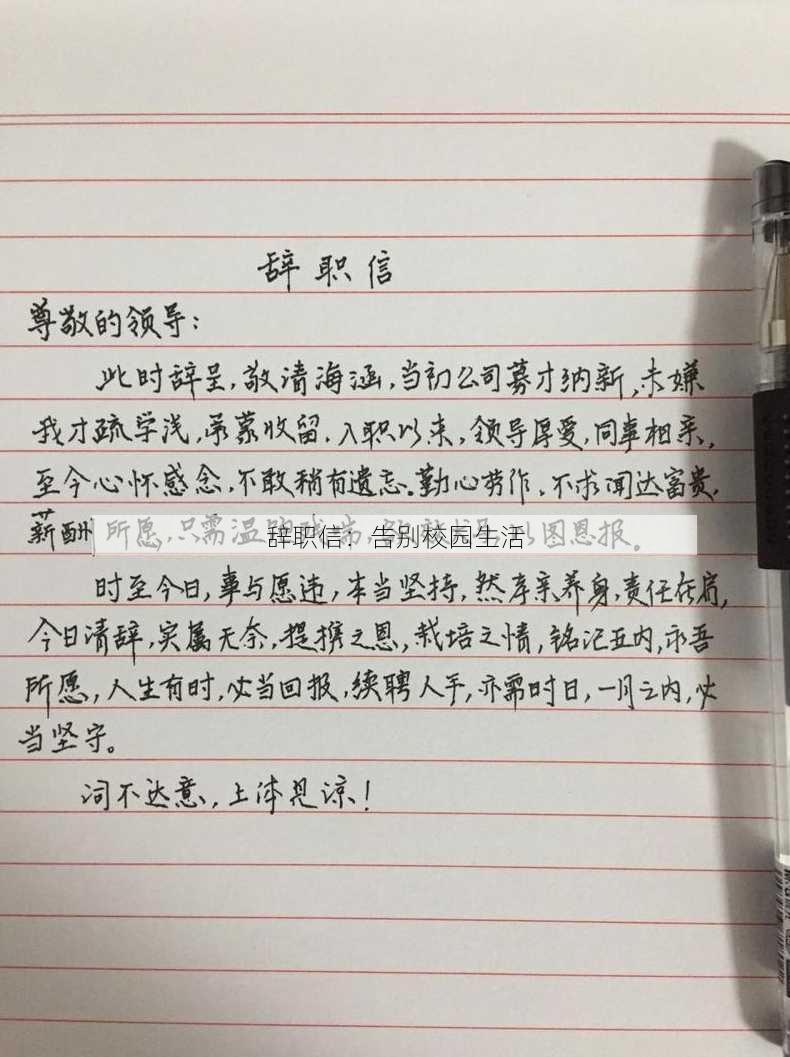 辞职信
尊敬的领导：
此时辞呈，敬请海涵，当初公司募才纳新，未嫌
我才疏学浅，承蒙收留，入职以来，领导厚爱，同事相亲，
至今心怀感念，不敢稍有遗忘。勤心劳作，不求闻达富贵，
薪酬所愿，只需温饱 以图恩报。
辞职信：告别校园生活
时至今日，事与愿违，本当坚持，然孝亲养身，责任在肩，
今日请辞，实属无奈，提携之恩，栽培之情，铭记五内，亦吾
所愿，人生有时，必当回报，续聘人手，亦需时日，一月之内，必
当坚守。
词不达意，上体见谅！